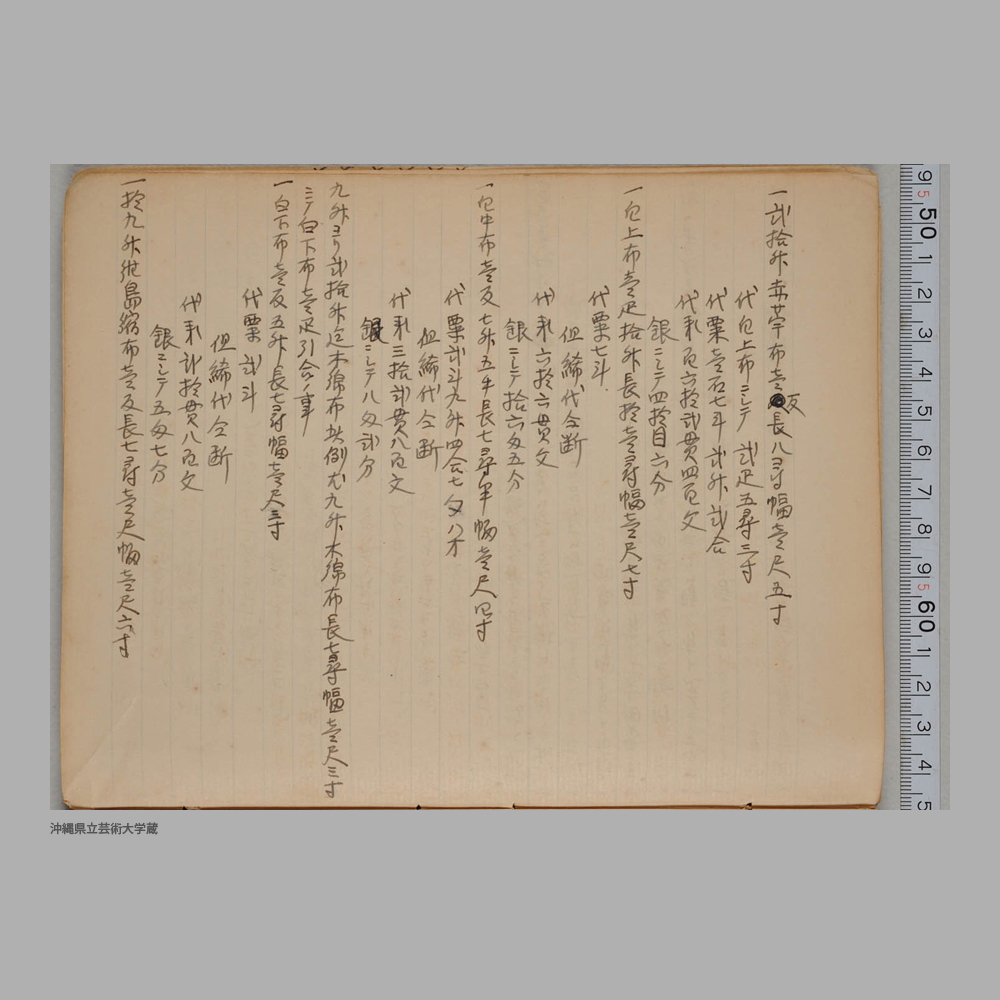 一弐拾升赤苧布壱反長八尋幅壱尺五寸
代白上布ニシテ弐疋五尋三寸
代粟壱石七斗弐升弐合
代米百六拾弐貫四百文
銀ニシテ四拾目六分
一白上布壱疋拾升長拾壱尋幅壱尺七寸
代粟七斗
但締代仝断
代米六拾六貫文
銀ニシテ拾六匁五分
一白中布壱反七升五斗長七尋半幅壱尺四寸
代粟弐斗九升四合七勺八才
但締代仝断
代米三拾弐貫八百文
銀ニシテ八匁弐分
九升ヨリ弐拾升迄木綿布此例尤九升木綿布長七尋幅壱尺三寸
ニテ白下布壱疋引合ノ事
一白下布壱反五升長七尋幅壱尺三寸
代粟弐斗
但締代仝断
代米弐拾貫八百文
銀ニシテ五匁七分
一拾九升紺島縮布壱反長七尋壱尺幅壱尺六寸
9 5 50 1 2 3 4 5 6 7 8 9 5 60 1 2 3 4 5
沖縄県立芸術大学蔵